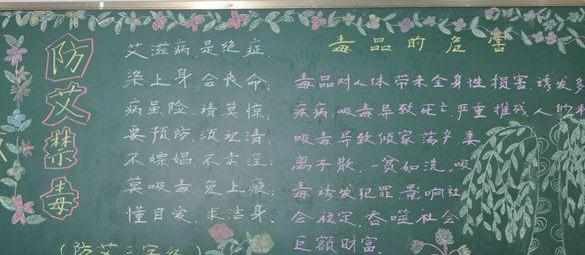 防艾禁毒
艾滋病 是绝症
染上身 会丧命
病虽险 情莫惊
要预防 须
不嫖娼 不
莫吸毒 更上瘾
懂自爱 求洁身
(防艾三字经)
毒品的危害
毒品对人体带来全身性损害,诱发多
疾病,吸毒导致死亡严重摧残人的
吸毒导致倾家荡产妻
离子散,一贫如洗,吸
毒诱发犯罪影响社
会稳定,吞噬社会
巨额财富.